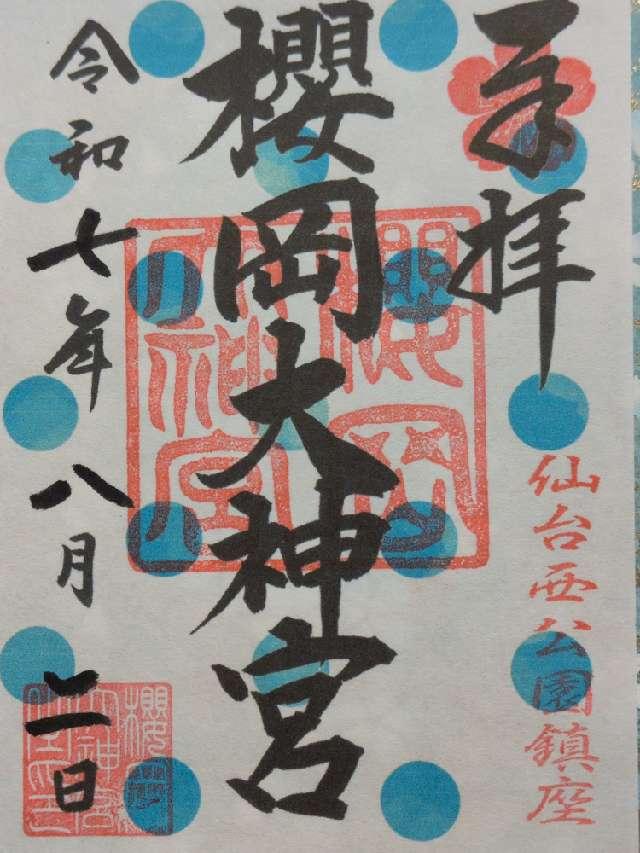 奉拝
仙台西公園鎮座
櫻岡大神宮
令和七年八月二日